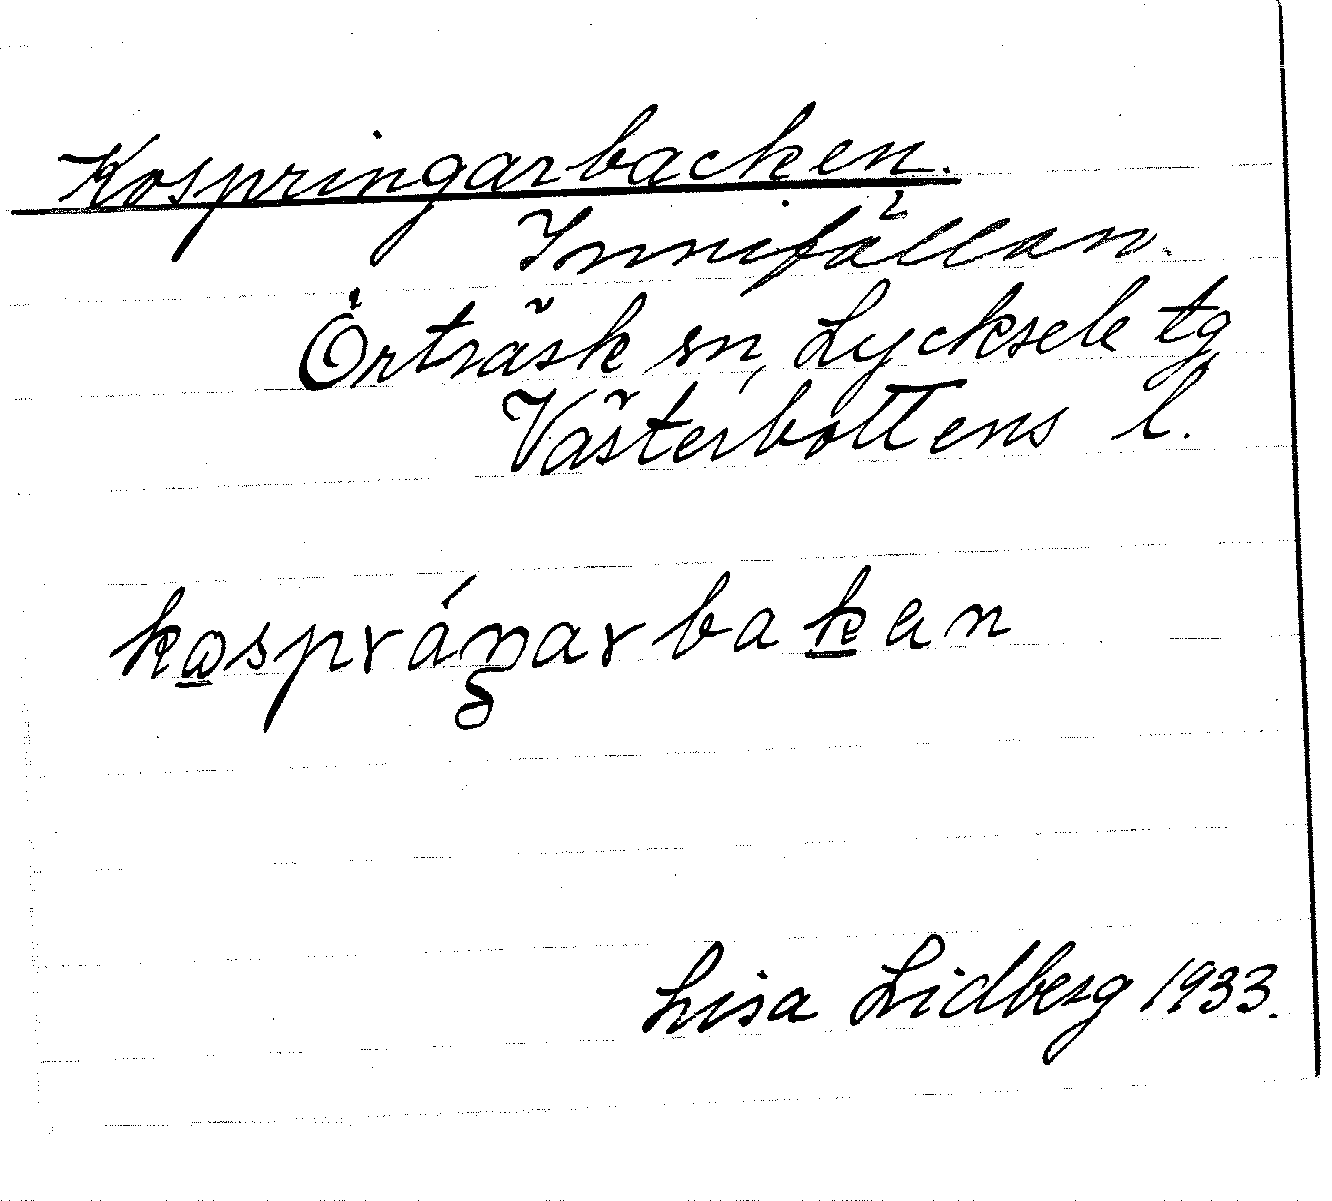 Kospringarbacken.
Innifällan.
Örträsk sn, Lycksele tg
Västerbottens l.
kospráŋarbakan
Lisa Lidberg 1933.